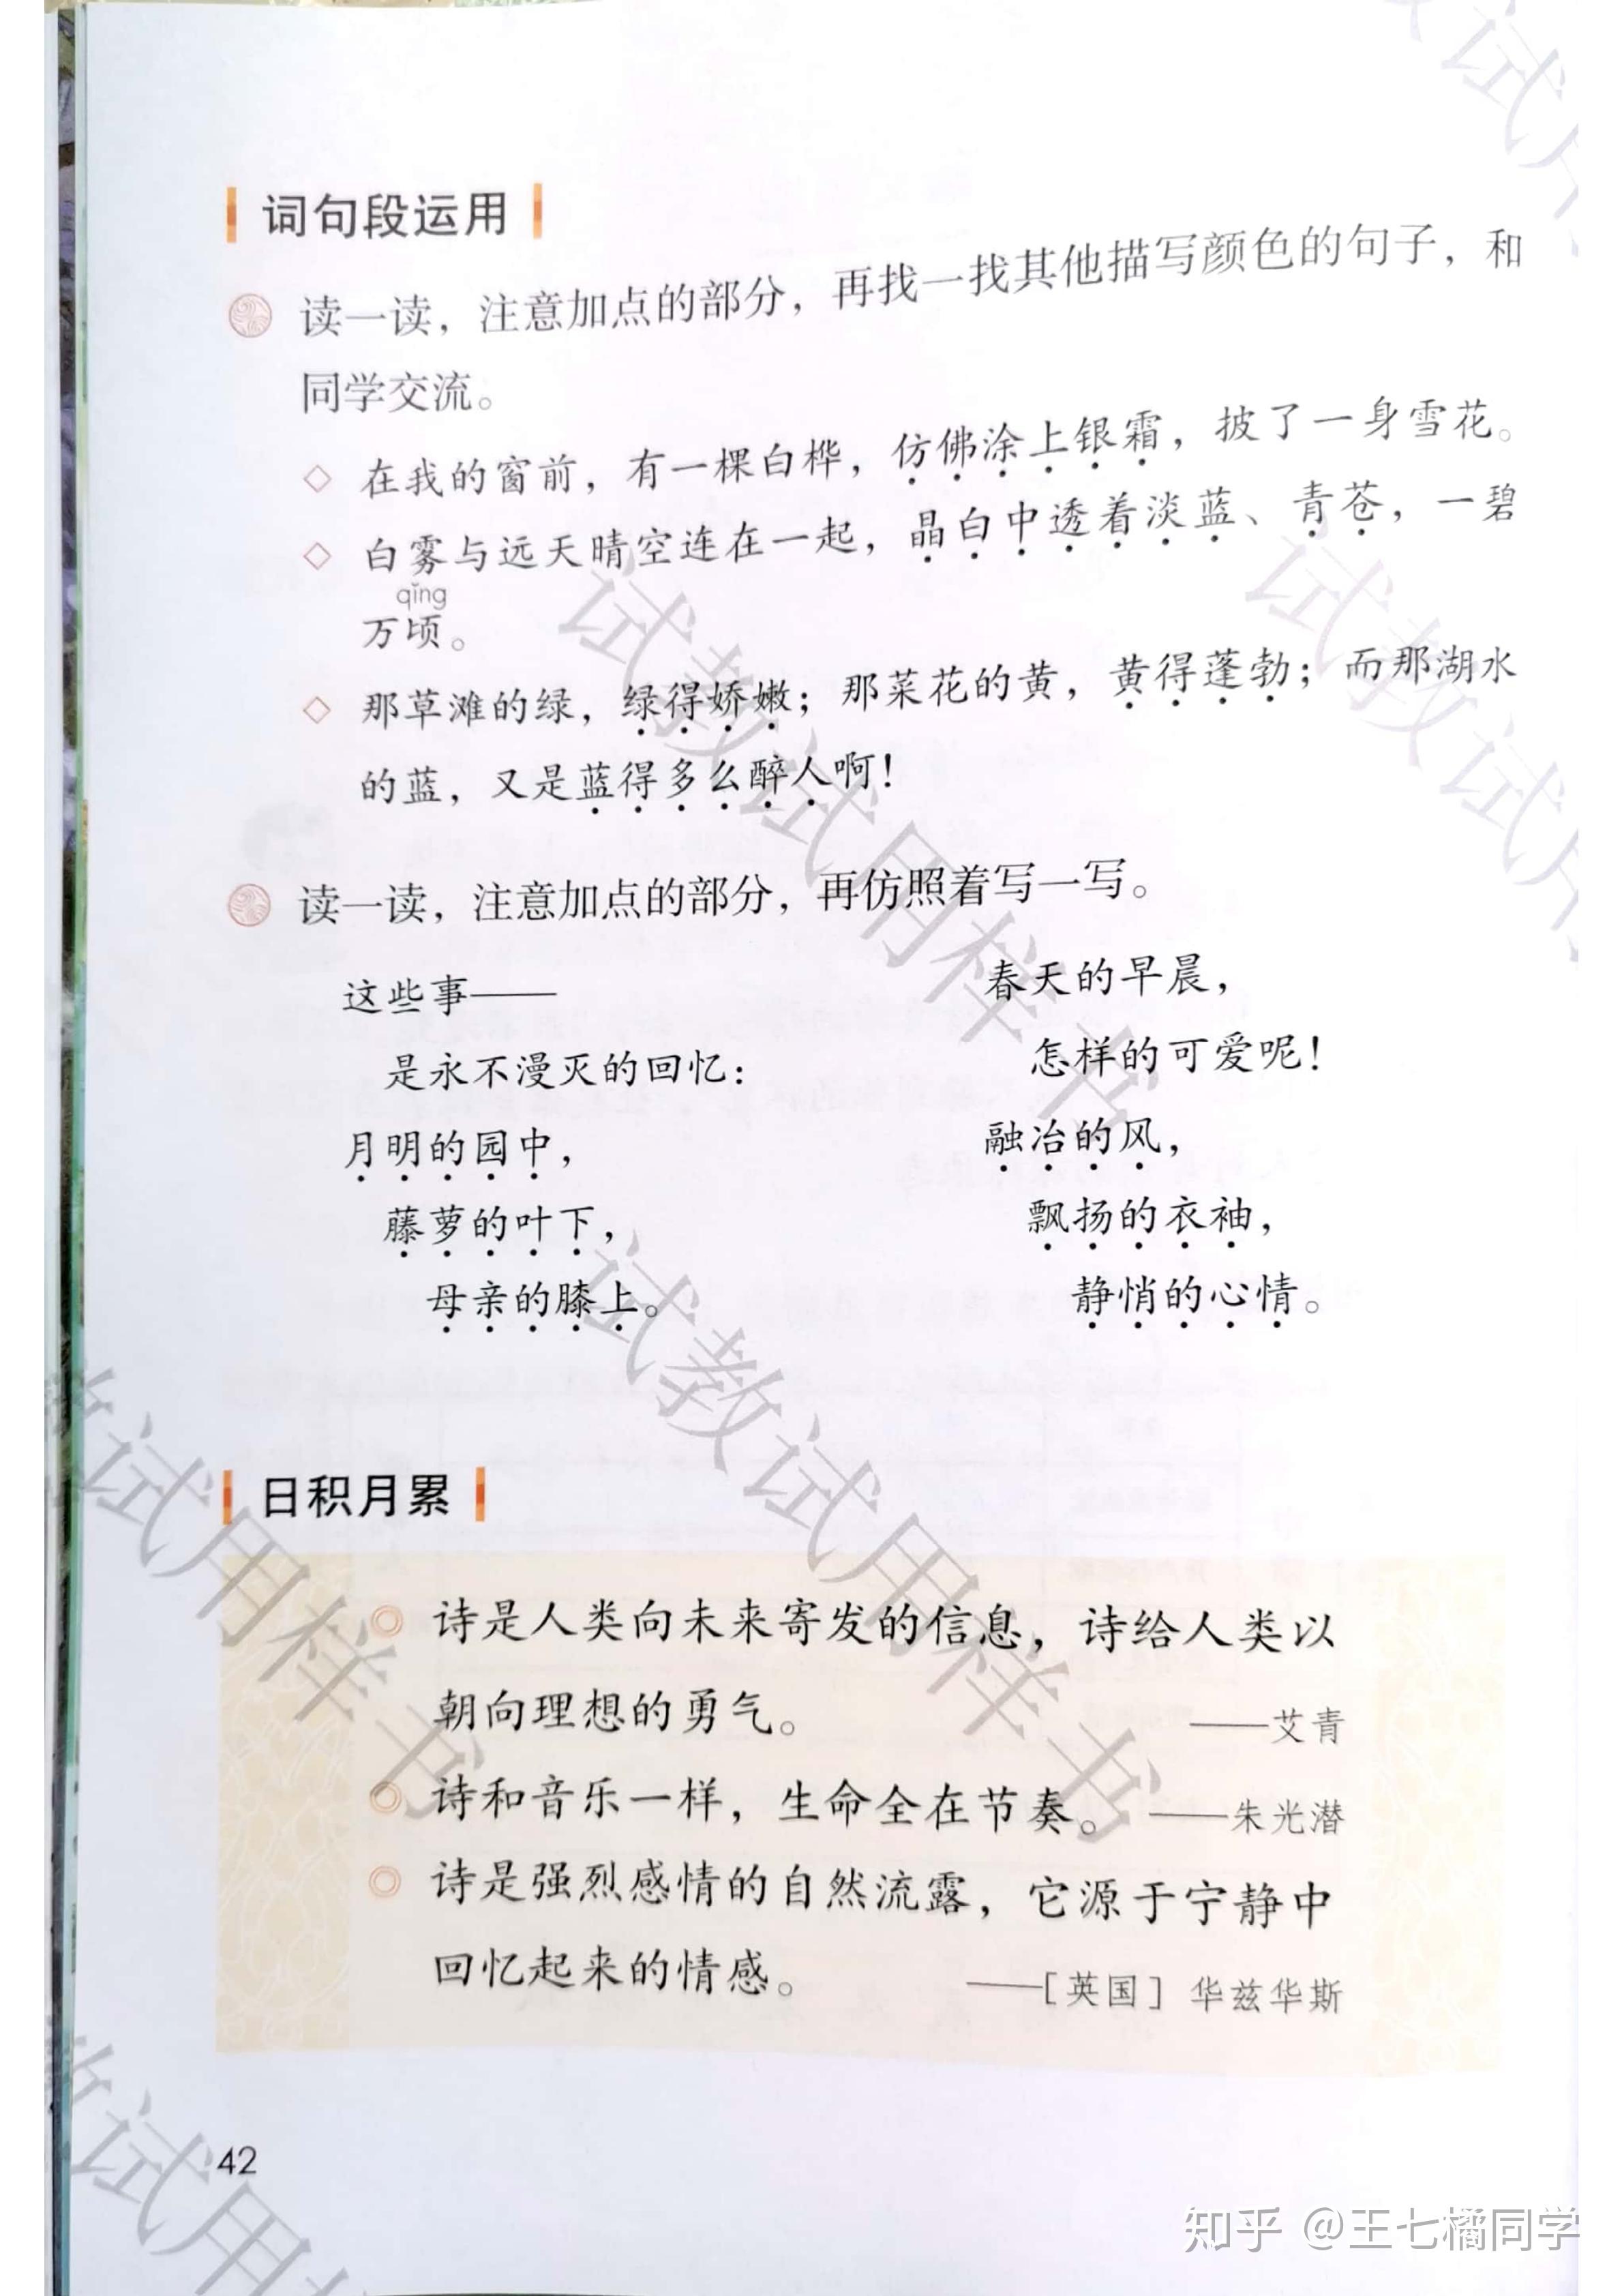 词句段运用
读一读，注意加点的部分，再找一找其他描写颜色的句子，和
同学交流。
在我的窗前，有一棵白桦，仿佛涂上银霜，披了一身雪花。
白雾与远天晴空连在一起，晶白中透着淡蓝、青苍，一碧
qǐng
万顷。
那草滩的绿，绿得娇嫩；那菜花的黄，黄得蓬勃；而那湖水
的蓝，又是蓝得多么醉人啊！
读一读，注意加点的部分，再仿照着写一写。
这些事——
是永不漫灭的回忆：
月明的园中，
藤萝的叶下，
母亲的膝上。
春天的早晨，
怎样的可爱呢！
融冶的风，
飘扬的衣袖，
静悄的心情。
日积月累
诗是人类向未来寄发的信息，诗给人类以
朝向理想的勇气。 ——艾青
诗和音乐一样，生命全在节奏。 ——朱光潜
诗是强烈感情的自然流露，它源于宁静中
回忆起来的情感。 ——［英国］华兹华斯
42
试教试用样书
试教试用样书
试教试用样书
教试用样书
教试用
试
知乎 @王七橘同学